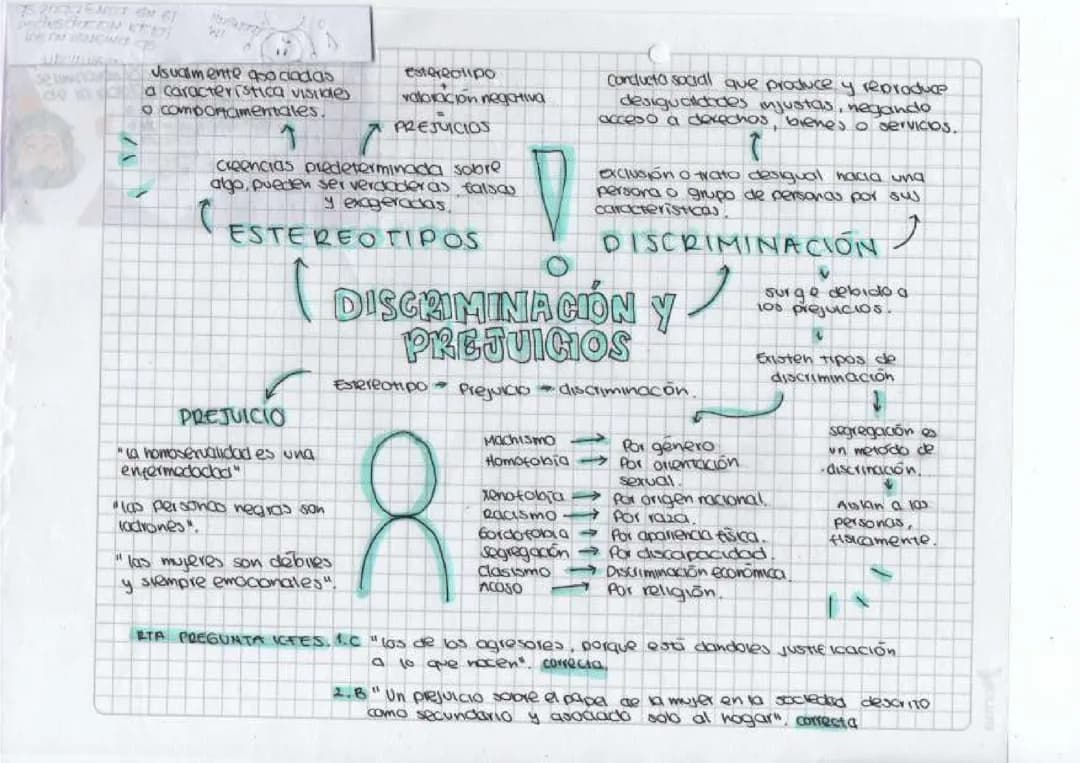 usualmente asociadas
a característica visibles
o comportamentales.
estereotipo
+
valoración negativa
=
PREJUCIOS
conducta social que produce y reproduce
desigualdades injustas, negando
acceso a derechos, bienes o servicios.
creencias predeterminada sobre
algo, pueden ser verdaderas, falsas
y exageradas.
exclusión o trato desigual hacia una
persona o grupo de personas por sus
características.
ESTEREOTIPOS
DISCRIMINACIÓN
surge debido a
los prejuicios.
DISCRIMINACIÓN Y
PREJUICIOS
Existen tipos de
discriminación
Estereotipo → Prejuicio → discriminación.
PREJUICIO
"la homosexualidad es una
enfermedadad"
"las personas negras son
ladrones".
"las mujeres son débiles
y siempre emocionales".
Machismo → Por género
Homofobia → Por orientación
sexual.
Xenofobia → Por origen nacional.
Racismo → Por raza.
Gordofobia → Por apariencia física.
Segregación → Por discapacidad.
Clasismo → Discriminación económica
Acoso → Por religión.
segregación es
un metodo de
discrinación.
Aislan a las
personas,
fisicamente.
RTA PREGUNTA ICFES. 1.C "las de los agresores, porque está dandoles justificación
a lo que hacen". correcta.
2.B "Un prejuicio sobre el papel de la mujer en la sociedad descrito
como secundario y asociado solo al hogar". correcta